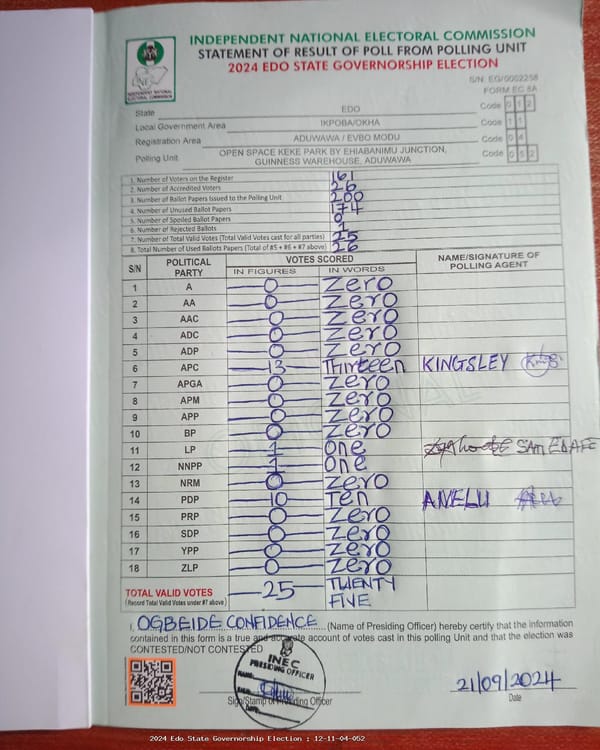 INDEPENDENT NATIONAL ELECTORAL COMMISSION
STATEMENT OF RESULT OF POLL FROM POLLING UNIT
2024 EDO STATE GOVERNORSHIP ELECTION
INEC
INDEPENDENT NATIONAL ELECTORAL COMMISSION
S/N: EG/0002258
FORM EC 8A
State EDO Code 0 1 2
Local Government Area IKPOBA/OKHA Code 1 1
Registration Area ADUWAWA / EVBO MODU Code 0 4
Polling Unit OPEN SPACE KEKE PARK BY EHIABANIMU JUNCTION, GUINNESS WAREHOUSE, ADUWAWA Code 0 5 2
1. Number of Voters on the Register 161
2. Number of Accredited Voters 26
3. Number of Ballot Papers Issued to the Polling Unit 200
4. Number of Unused Ballot Papers 174
5. Number of Spoiled Ballot Papers 0
6. Number of Rejected Ballots 1
7. Number of Total Valid Votes (Total Valid Votes cast for all parties) 25
8. Total Number of Used Ballots Papers (Total of #5 + #6 + #7 above) 26
S/N POLITICAL PARTY VOTES SCORED NAME/SIGNATURE OF POLLING AGENT
IN FIGURES IN WORDS
1 A 0 Zero
2 AA 0 Zero
3 AAC 0 Zero
4 ADC 0 Zero
5 ADP 0 Zero
6 APC 13 Thirteen KINGSLEY
7 APGA 0 Zero
8 APM 0 Zero
9 APP 0 Zero
10 BP 0 Zero
11 LP 1 One SAM EDAFE
12 NNPP 1 One
13 NRM 0 Zero
14 PDP 10 Ten ANELU
15 PRP 0 Zero
16 SDP 0 Zero
17 YPP 0 Zero
18 ZLP 0 Zero
TOTAL VALID VOTES 25 TWENTY FIVE
(Record Total Valid Votes under #7 above)
I, OGBEIDE CONFIDENCE (Name of Presiding Officer) hereby certify that the information
contained in this form is a true and accurate account of votes cast in this polling Unit and that the election was
CONTESTED/NOT CONTESTED
INEC
PRESIDING OFFICER
Sign/Stamp of Presiding Officer
21/09/2024
Date
2024 Edo State Governorship Election : 12-11-04-052